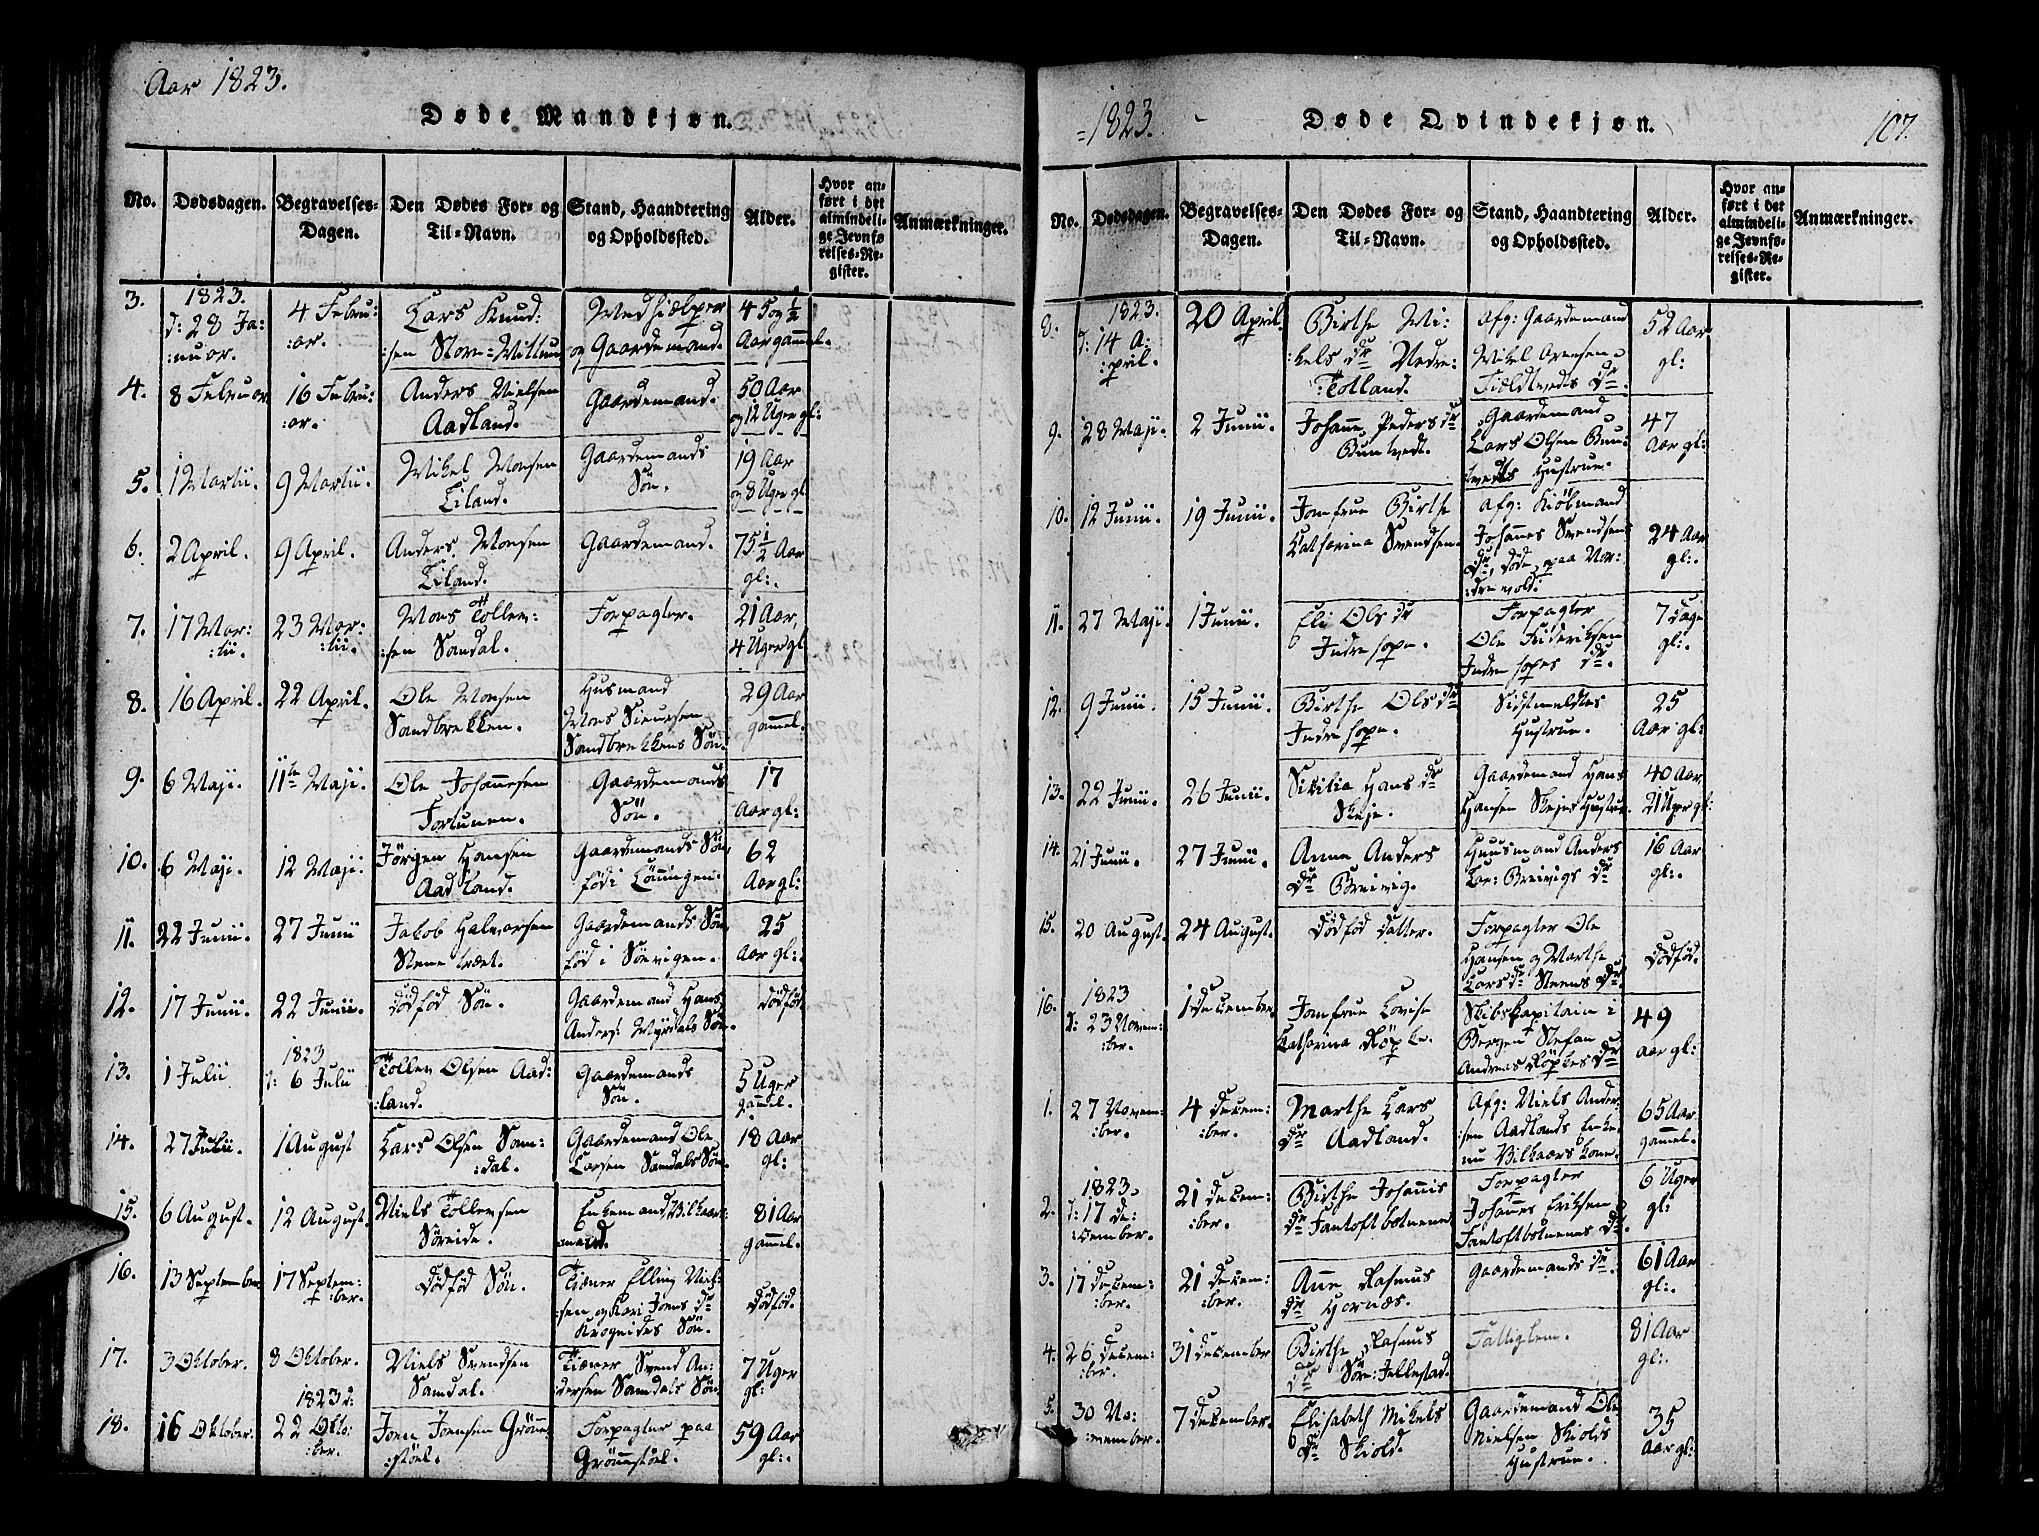 Aar 1823.
Døde Mandkjøn.
No.
Dødsdagen.
Begravelses-
Dagen.
Den Dødes For- og
Til-Navn.
Stand, Haandtering
og Opholdssted.
Alder.
Hvor an-
ført i det
almindeli-
ge Jevnfø
relses-Re-
gister.
Anmærkninger.
3.
1823.
d: 28 Ja:
:nuar.
4 Febru:
:ar.
Lars Knud:
:sen Store=Milluu
Medhielper
og Gaardemand.
45 og ½
Aar gammel.
4.
8 Februar
16 Febru:
:ar.
Anders Nielsen
Aadland.
Gaardemand.
50 Aar
og 12 Uger gl:
5.
1 Martii.
9 Martii.
Mikel Monsen
Liland.
Gaardemands
Søn.
19 Aar
og 8 Uger gl
6.
2 April.
9 April.
Anders Monsen
Liland.
Gaardemand.
75 ½ Aar
gl:.
7.
17 Mar:
:tii.
23 Mar:
:tii.
Mons Tollev:
:sen Sandal.
Forpagter.
21 Aar,
4 Uger gl
8.
16 April.
22 April.
Ole Monsen
Sandbrekken.
Husmand
Mons Siversen
Sandbrekkens Søn.
29 Aar
gammel.
9.
6 Maji.
11te Maji.
Ole Johannesen
Fortunen.
Gaardemands
Søn.
17
Aar gl:
10.
6 Maji.
12 Maji.
Jørgen Hansen
Aadland.
Gaardemands Søn
fød i Lønningen.
62
Aar gl:
11.
22 Junii.
27 Junii
Jakob Halvorsen
Stenetræet.
Gaardemands Søn,
fød i Søevigen.
25
Aar gl:.
12.
17 Junii.
22 Junii.
dødfød Søn.
Gaardemand Hans
Anders: Myrdals Søn.
dødfød
13.
1 Julii
1823
d: 6 Julii
Tollev Olsen Aad-
:land.
Gaardemands
Søn.
5 Uger
gammel.
14.
27 Julii.
1 August
Lars Olsen Sam:
:dal.
Gaardemand Ole
Larsen Samdals Søn.
18 Aar
gl:
15.
6 August.
12 August.
Niels Tollevsen
Søreide.
Enkemand, Vilkaars:
mand.
81 Aar
gammel.
16.
13 September
17 Septem:
:ber.
Dødfød Søn.
Tiæner Elling Niel-
:sen, og Kari Joens dr
Krogeides Søn.
dødfød.
17.
3 Oktober.
8 Oktober.
Niels Svendsen
Samdal.
Tiæner Svend An:
:dersen Samdals Søn
7 Uger
gl:
18.
16 Oktober.
1823 d:
22 Okto:
:ber.
Joen Joensen Grønne
:støel.
Forpagter paa
Grønnestøel.
59 Aar
gl:.
=1823.
Døde Qvindekjøn.
107.
No.
Dødsdagen.
Begravelses-
Dagen.
Den Dødes For- og
Til-Navn.
Stand, Haandtering
og Opholdssted.
Alder.
Hvor an-
ført i det
almindeli-
ge Jevnfø-
relses-Re-
gister.
Anmærkninger.
8.
1823.
d: 14 A:
:pril.
20 April.
Birthe Mi:
:kels dr Nedre:
:Totland.
Afg: Gaardemand
Mikel Arnesen
Tieldtvedts dr.
52 Aar
gl:
9.
28 Maji.
2 Junii.
Johanne Peders dr
Buntvedt.
Gaardemand
Lars Olsen Bun:
tvedts Hustrue.
47
Aar gl:
10.
12 Junii.
19 Junii.
Jomfrue Birthe
Catharina Svendsen.
Afg: Kiøbmand
Johannes Svendsens
dr, døde paa Nor:
:drevold.
24 Aar
gl:.
11.
27 Maji.
1 Junii.
Eli Ols dr
Indrehope.
Forpagter
Ole Frideriksen
Indrehopes dr.
7 dage
gl:.
12.
9 Junii.
15 Junii.
Birthe Ols dr
Indrehope.
Sidstmeldtes
Hustrue.
25
Aar gl:
13.
22 Junii.
26 Junii.
Sikilia Hans dr
Skeje.
Gaardemand Hans
Hansen Skejes Hustrue.
40 Aar
21 Uger gl:
14.
21 Junii.
27 Junii.
Anna Anders
dr Breivig.
Huusmand Anders
Lar: Breivigs dr
16 Aar
gl:.
15.
20 August.
24 August.
dødfød datter.
Forpagter Ole
Hansen og Marthe
Lars dr Steens dr.
dødfød.
16.
1823
d: 23 Novem:
:ber.
1 december.
Jomfrue Lovise
Catharina Røpke.
Skibskapitain i
Bergen Stefan
Andreas Røpkes dr
49
Aar gl:
1.
27 Novem:
:ber.
4 decem:
:ber.
Marthe Lars
dr Aadland.
Afg: Niels Ander:
:sen Aadlands Enke.
nu Vilkaars kone.
65 Aar
gammel.
2.
1823.
d: 17 de:
:cember.
21 decem:
:ber.
Birthe Johannis
dr Fantoftbotnene
Forpagter
Johannes Eriksen
Fantoftbotnenes dr.
6 Uger
gl:
3.
17 decem:
:ber.
21 decem:
:ber.
Anne Rasmus
dr Hornæs.
Gaardemands dr.
61 Aar
gl:
4.
26 decem:
:ber.
31 december
Birthe Rasmus
dr Søre: Jellestad.
Fattiglem.
81 Aar
gl:.
5.
30 No:
:vember.
7 december.
Elisabeth Mikels
dr Skiold.
Gaardemand Ole
Nielsen Skiolds
Hustrue.
35
Aar gl: